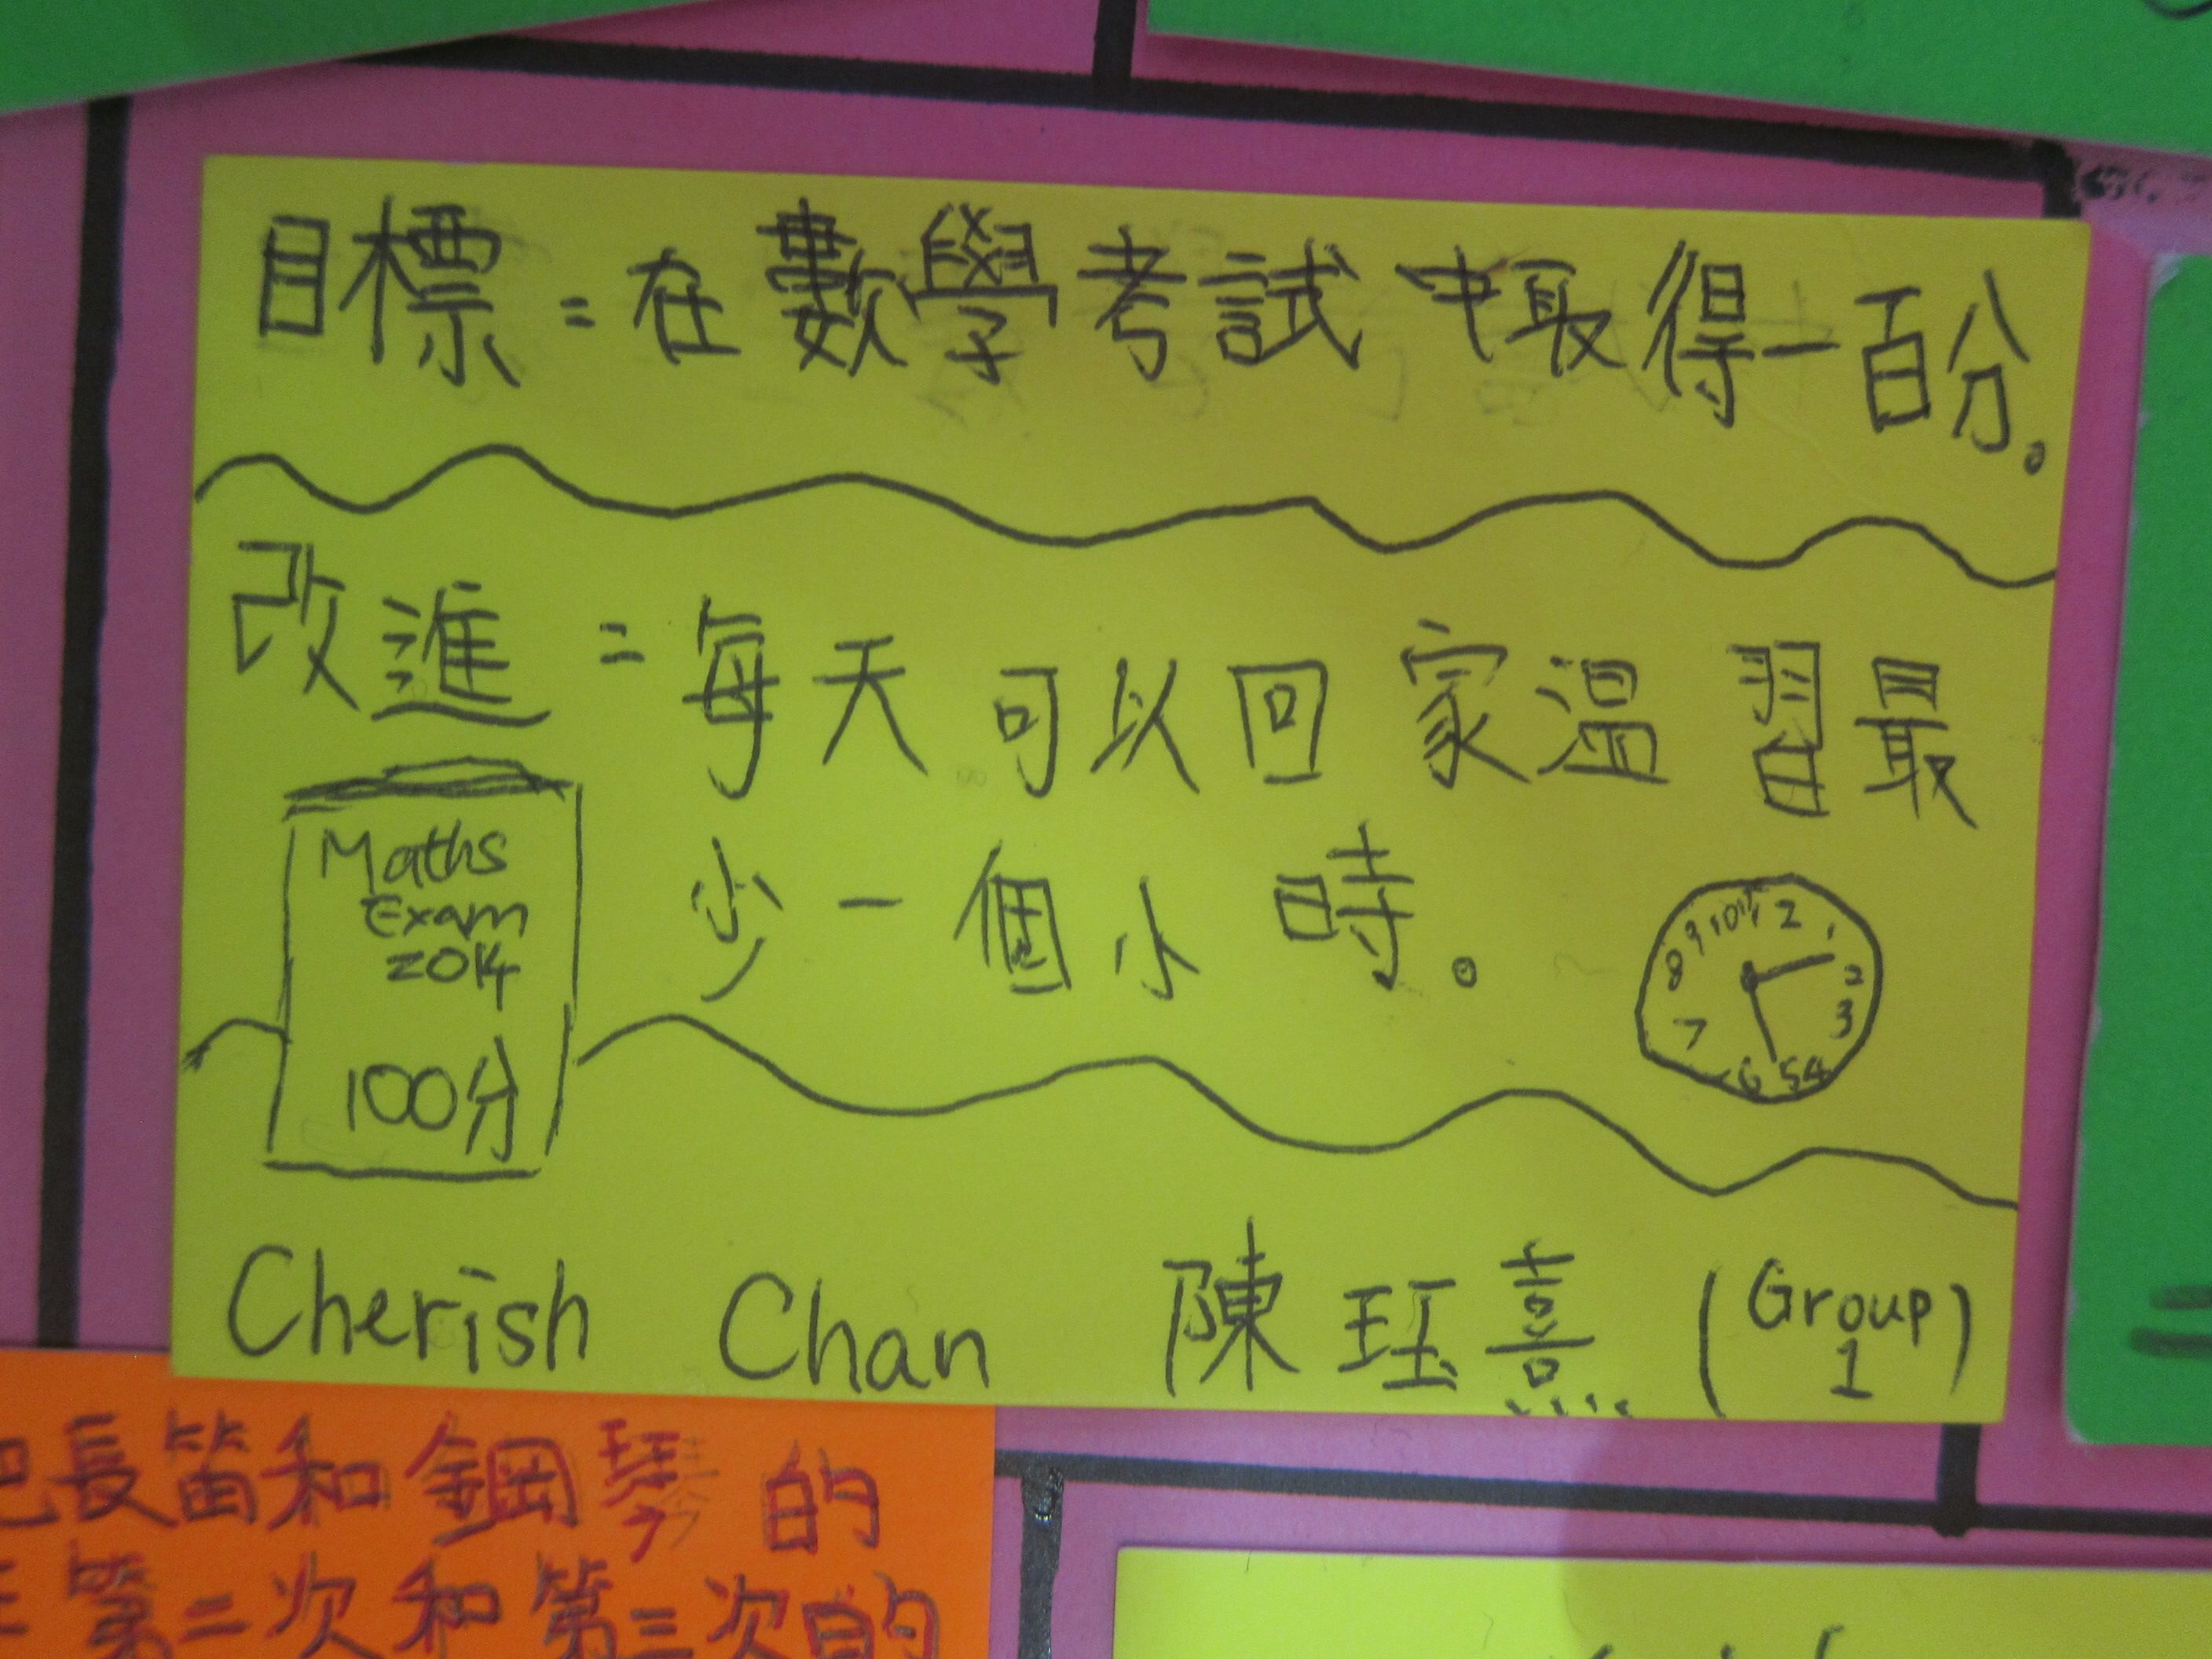 目標=在數學考試中取得一百分。
改進=每天可以回家温習最
少一個小時。
Maths
Exam
2014
100分
9 10 11 2 1
8 2
7 3
6 5 4
Cherish Chan 陳珏熹 (Group 1)
把長笛和鋼琴的
第二次和第三次的